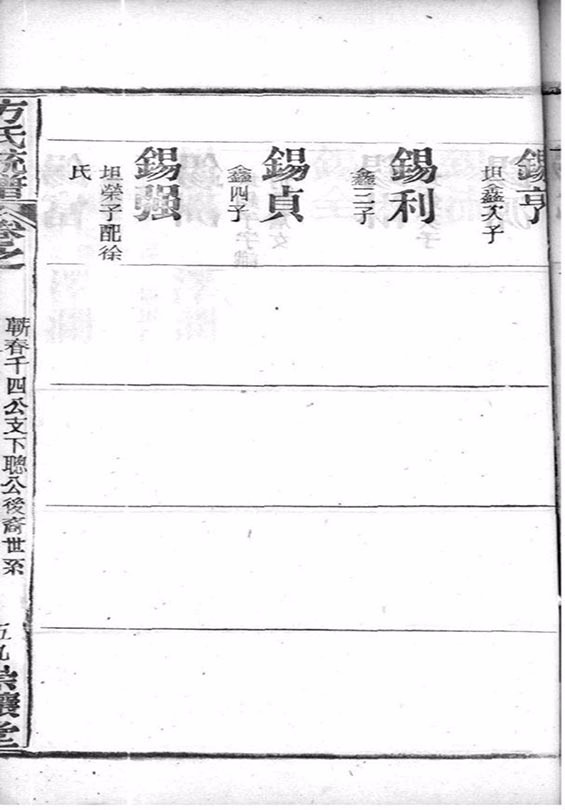 錫亨
坦鑫次子
錫利
鑫三子
錫貞
鑫四子
錫强
坦榮子配徐
氏
方氏統譜
卷之
蘄春千四公支下聰公後裔世系
五九